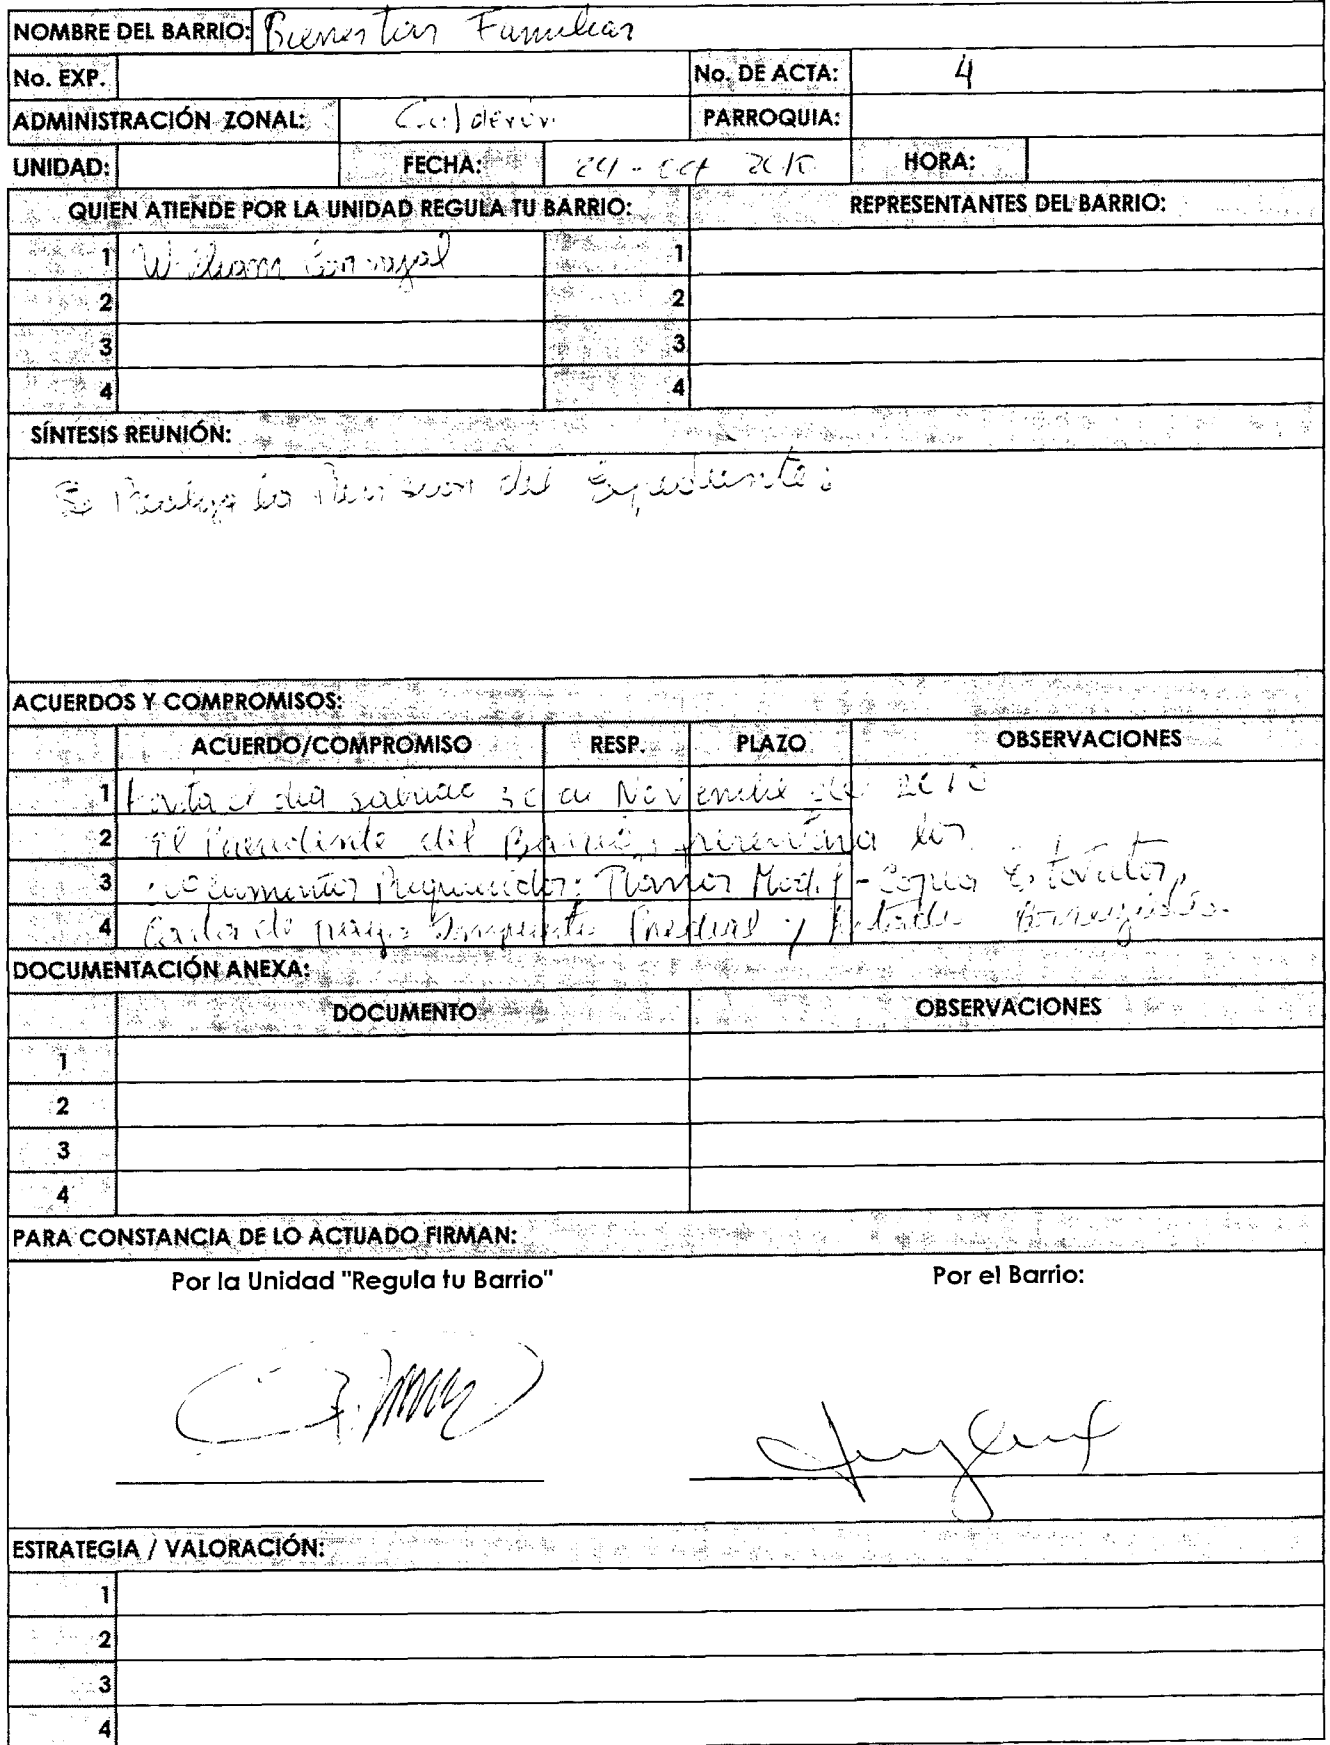 NOMBRE DEL BARRIO: Bienestar Familiar
No. EXP. No. DE ACTA: 4
ADMINISTRACIÓN ZONAL: Calderón PARROQUIA:
UNIDAD: FECHA: 24 - oct 2010 HORA:
QUIEN ATIENDE POR LA UNIDAD REGULA TU BARRIO: REPRESENTANTES DEL BARRIO:
1 William Carvajal 1
2 2
3 3
4 4
SÍNTESIS REUNIÓN:
Se Realiza la Revision del Expediente:
ACUERDOS Y COMPROMISOS:
ACUERDO/COMPROMISO RESP. PLAZO OBSERVACIONES
1 Hasta el dia sabado 30 de Noviembre del 2010
2 El Presidente del Barrio, presentara los
3 documentos Requeridos: Planos Modif - Copia Estatutos,
4 Carta de pago Impuesto Predial y
DOCUMENTACIÓN ANEXA:
DOCUMENTO OBSERVACIONES
1
2
3
4
PARA CONSTANCIA DE LO ACTUADO FIRMAN:
Por la Unidad "Regula tu Barrio" Por el Barrio:
ESTRATEGIA / VALORACIÓN:
1
2
3
4